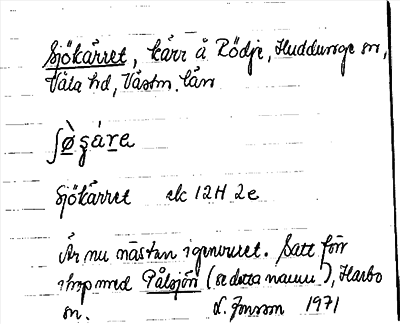 Sjökärret, kärr å Rödje, Huddunge sn,
Våla hd, Västm. län
ʃø̀ɕárɛ
Sjökärret ek 12H 2e
Är nu nästan igenvuxet. Satt förr
ihop med Pålsjön (se detta namn), Harbo
sn. L. Jonsson 1971